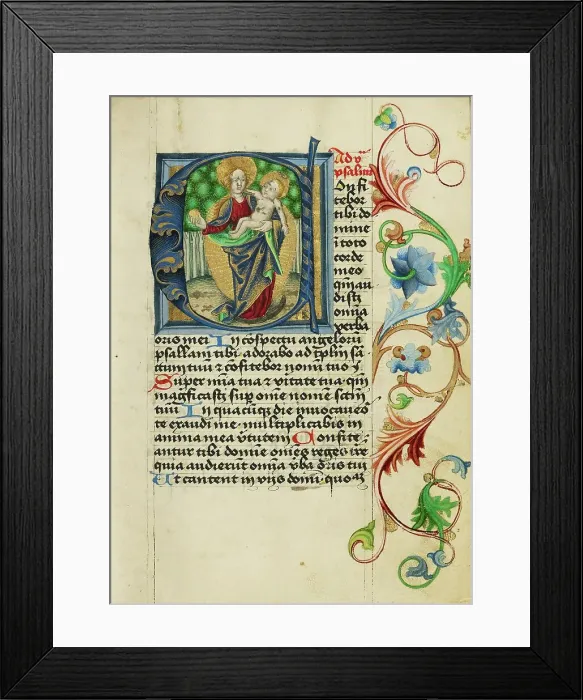 Ad v̄
psalm̄
Onfi
tebor
tibi do
mine
ī toto
corde
meo
qm̄ au
disti
om̄ia
verba
oris mei In cōspectu angelorū
psallam tibi adorabo ad tēplm̄ sā
ctum tuū ⁊ cōfitebor nomī tuo
Super mīa tua ⁊ vītate tua qm̄
magficasti sup om̄e nomē sctm̄
tuū In quacūq die invocavero
te exaudi me multiplicabis in
anima mea vtutem Confite
antur tibi domine om̄es reges tre
quia audierūt om̄ia vba oris tui
Et cantent in viis domī quoā